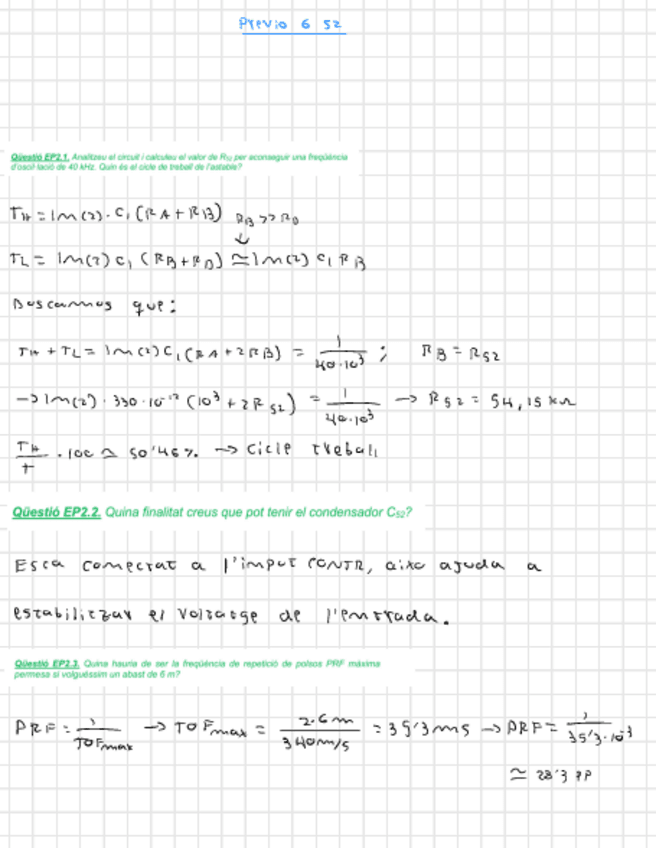 Previo 6 S2
Qüestió EP2.1. Analitzeu el circuit i calculeu el valor de R₅₂ per aconseguir una freqüència
d'oscil·lació de 40 kHz. Quin és el cicle de treball de l'astable?
T_H = ln(2)·C₁(RA+RB) R_B >> R_D
↓
T_L = ln(2) C₁ (R_B+R_D) ≃ ln(2) C₁ R_B
Buscamos que:
T_H + T_L = ln(2) C₁ (RA+2RB) = 1/40·10³ ; R_B = R_52
→ ln(2)·330·10⁻¹² (10³ + 2R_52) = 1/40·10³ → R_52 = 54,15 kΩ
T_H/T · 100 ≃ 50'46% → Cicle treball
Qüestió EP2.2. Quina finalitat creus que pot tenir el condensador C₅₂?
Esta conectat a l'input CONTR, aixo ajuda a
estabilitzar el voltatge de l'entrada.
Qüestió EP2.3. Quina hauria de ser la freqüència de repetició de polsos PRF màxima
permesa si volguéssim un abast de 6 m?
PRF = 1/TOF_max → TOF_max = 2·6m/340m/s = 35'3ms → PRF = 1/35'3·10⁻³
≃ 28'3